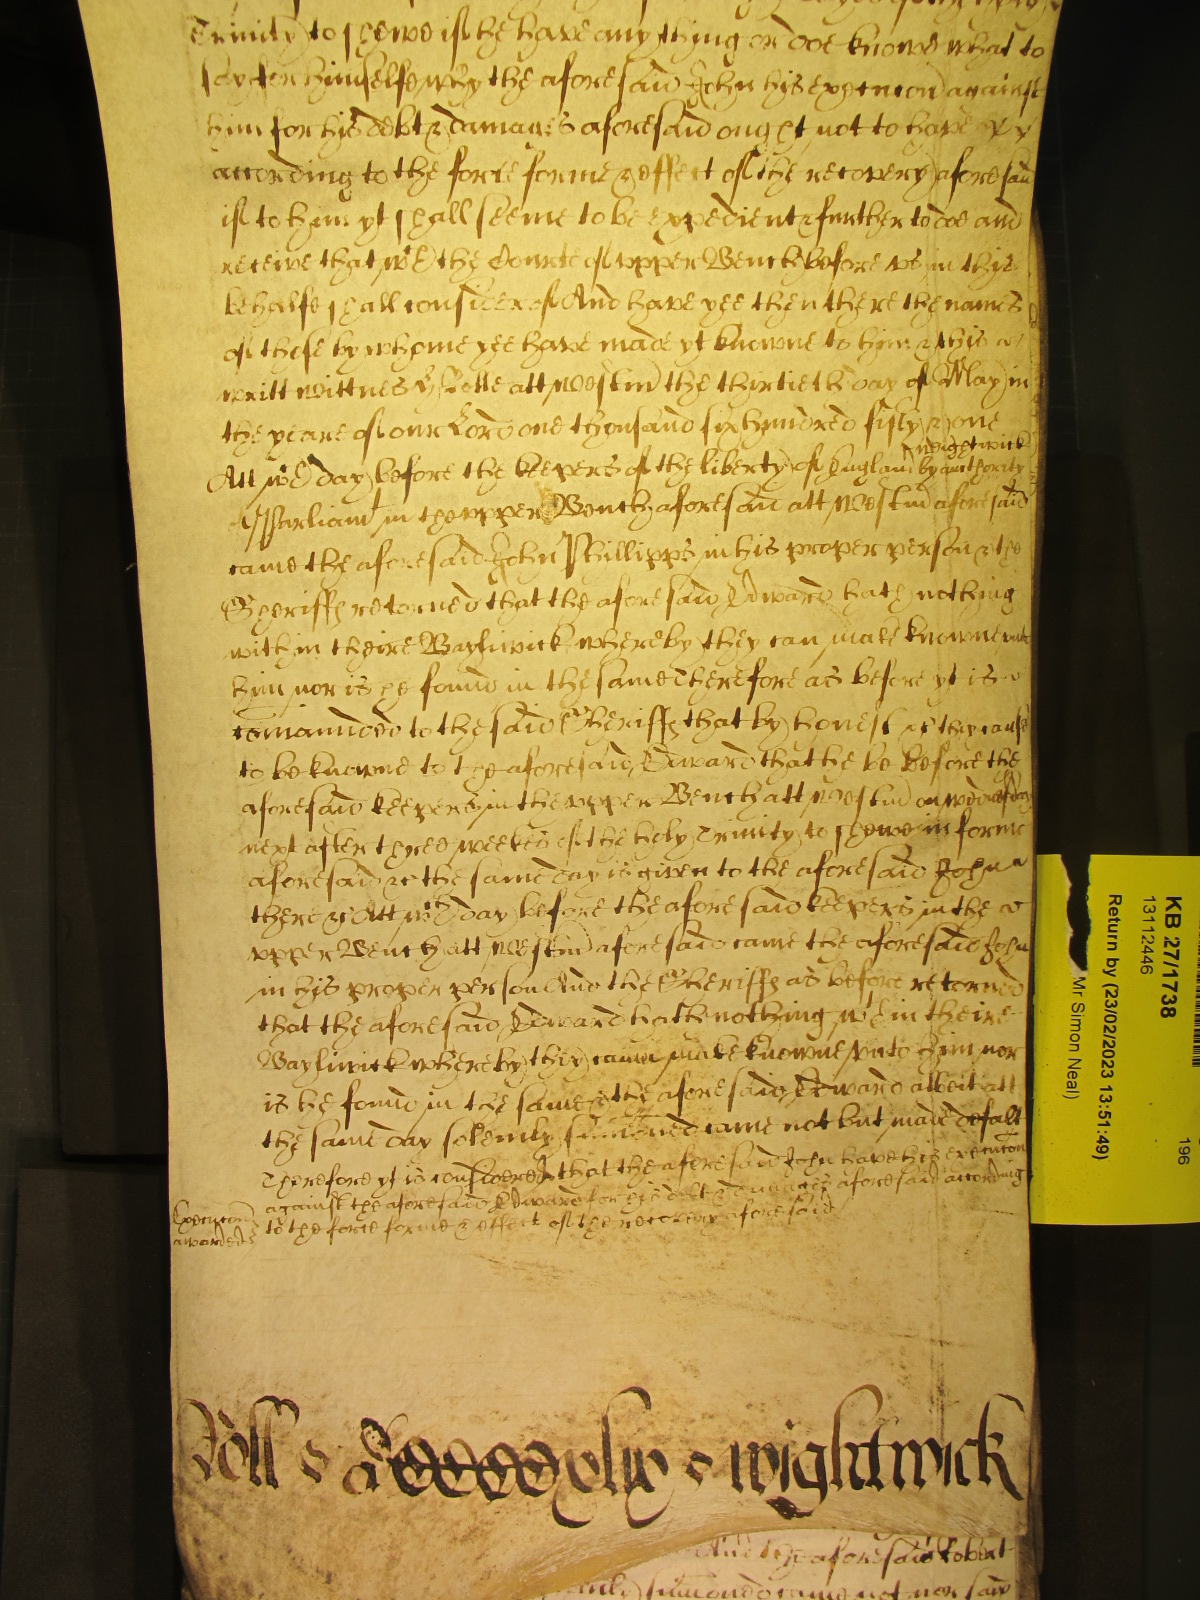 Trinity to shewe if he have any thing or doe knowe what to
say for himselfe why the aforesaid John his execucon against
him for his debt & damages aforesaid ought not to have
according to the force forme & effect of the recovery aforesaid
if to him yt shall seeme to be expedient & further to doe and
receive that wch the Courte of upper Bench before us in this
behalfe shall consider of And have yee then there the names
of those by whome yee have made yt knowne to him & this
writt wittnes H: Rolle att Westm the thirtieth day of May in
the yeare of our Lord one thousand six hundred fifty & one
Wightwick
Att wch day before the keepers of the liberty of England by authority
of Parliamt in the upper Bench aforesaid att Westm aforesaid
came the aforesaid John Phillipps in his proper person & the
Sheriffe retorned that the aforesaid Edward hath nothing
within theire Bayliwick whereby they can make knowne unto
him nor is he found in the same Therefore as before yt is
comanded to the said Sheriffe that by honest &c they cause
to be knowne to the aforesaid Edward that he be before the
aforesaid keepers in the upper Bench att Westm on wednesday
next after three weekes of the holy Trinity to shewe in forme
aforesaid &c the same day is given to the aforesaid John
there &c Att wch day before the aforesaid keepers in the
upper Bench att Westm aforesaid came the aforesaid John
in his proper person And the Sheriffe as before retorned
that the aforesaid Edward hath nothing wthin theire
Bayliwick whereby they cann make knowne unto him nor
is he found in the same & the aforesaid Edward albeit att
the same day solemly sumoned came not but made defalt
Therefore yt is considered that the aforesaid John have his execucon
against the aforesaid Edward for his debt & damages aforesaid according
to the force forme & effect of the recovery aforesaid
Execucon
awarded
Roll wightwick
And the aforesaid Robert
sumoned came not nor saw
KB 27/1738
13112446
Return by (23/02/2023 13:51:49)
Mr Simon Neal)
196